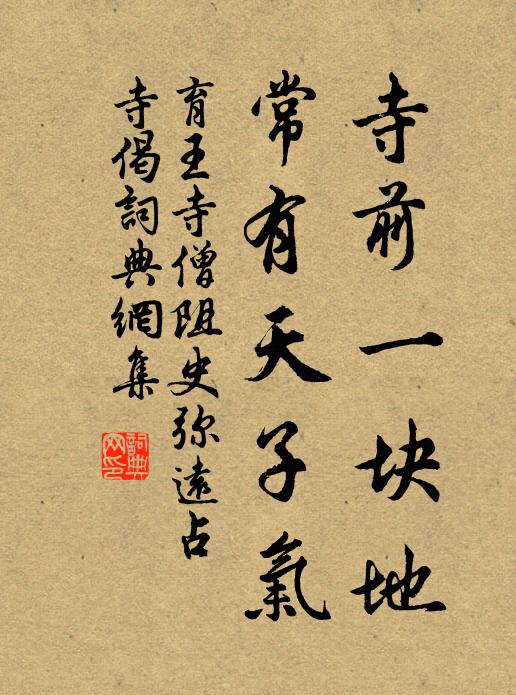 寺前一块地
常有天子氣
育王寺僧阻史弥遠占
寺偈詞典網集
詞典
网印